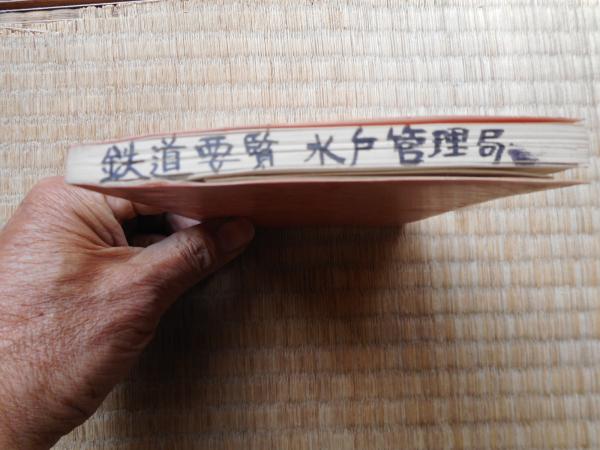 鉄道要覧 水戸管理局